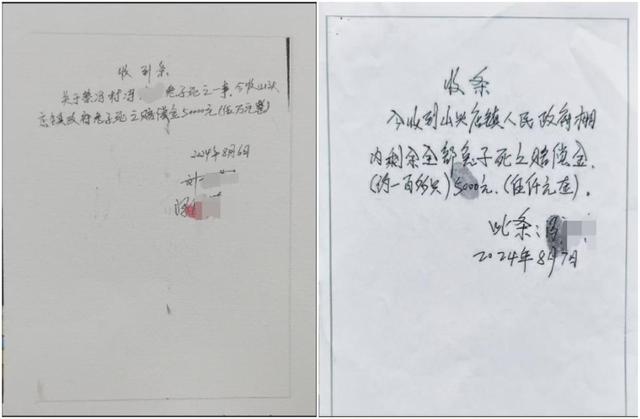 收到条
关于紫冯村冯 兔子死之一事,今收山头
店镇政府兔子死之赔偿金50000元(伍万元整)
2024年8月6日
叶
冯
收条
今收到山头店镇人民政府棚
内剩余全部兔子死之赔偿金
(约一百多只)5000元.(伍仟元整).
此条:冯
2024年8月7日